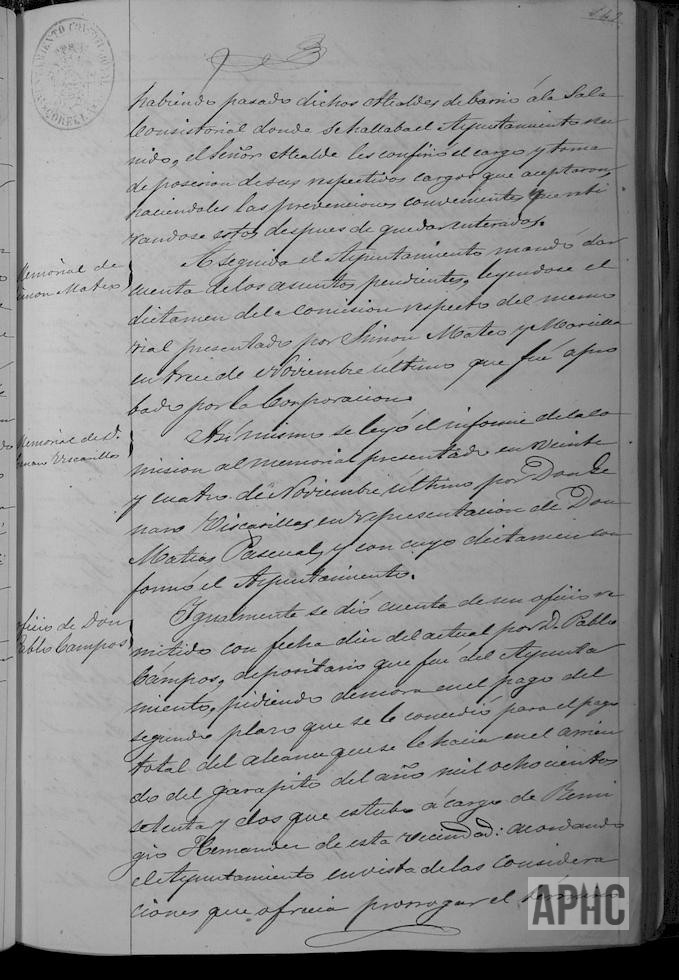 142
habiendo pasado dichos Alcaldes de barrio á la Sala
Consistorial donde se hallaba el Ayuntamiento reu
nido, el Señor Alcalde les confirió el cargo y toma
de posesion de sus respectivos cargos que aceptaron,
haciendoles las prevenciones convenientes, y reti
randose estos despues de quedar enterados.
Memorial de
Simon Mateo
A seguida el Ayuntamiento mandó dar
cuenta de los asuntos pendientes, leyendose el
dictamen de la Comision respecto del memo
rial presentado por Simon Mateo y Marcilla
en trece de Noviembre último que fué apro
bado por la Corporacion.
Memorial de D.
Genaro Viscasillas
Asi mismo se leyó el informe de la Co
mision al memorial presentado en veinte
y cuatro de Noviembre último por Don Ge
naro Viscasillas, en representacion de Don
Matias Pascual, y con cuyo dictamen con
formó el Ayuntamiento.
oficio de Don
Pablo Campos
Igualmente se dió cuenta de un oficio re
mitido con fecha diez del actual por D. Pablo
Campos, depositario que fué del Ayunta
miento, pidiendo demora en el pago del
segundo plazo que se le concedió para el pago
total del alcance que se le hacia en el arrien
do del garapito del año mil ochocientos
setenta y dos que estubo á cargo de Remi
gio Hernandez de esta vecindad: acordando
el Ayuntamiento en vista de las considera
ciones que ofrecia prorrogar el término
APHC